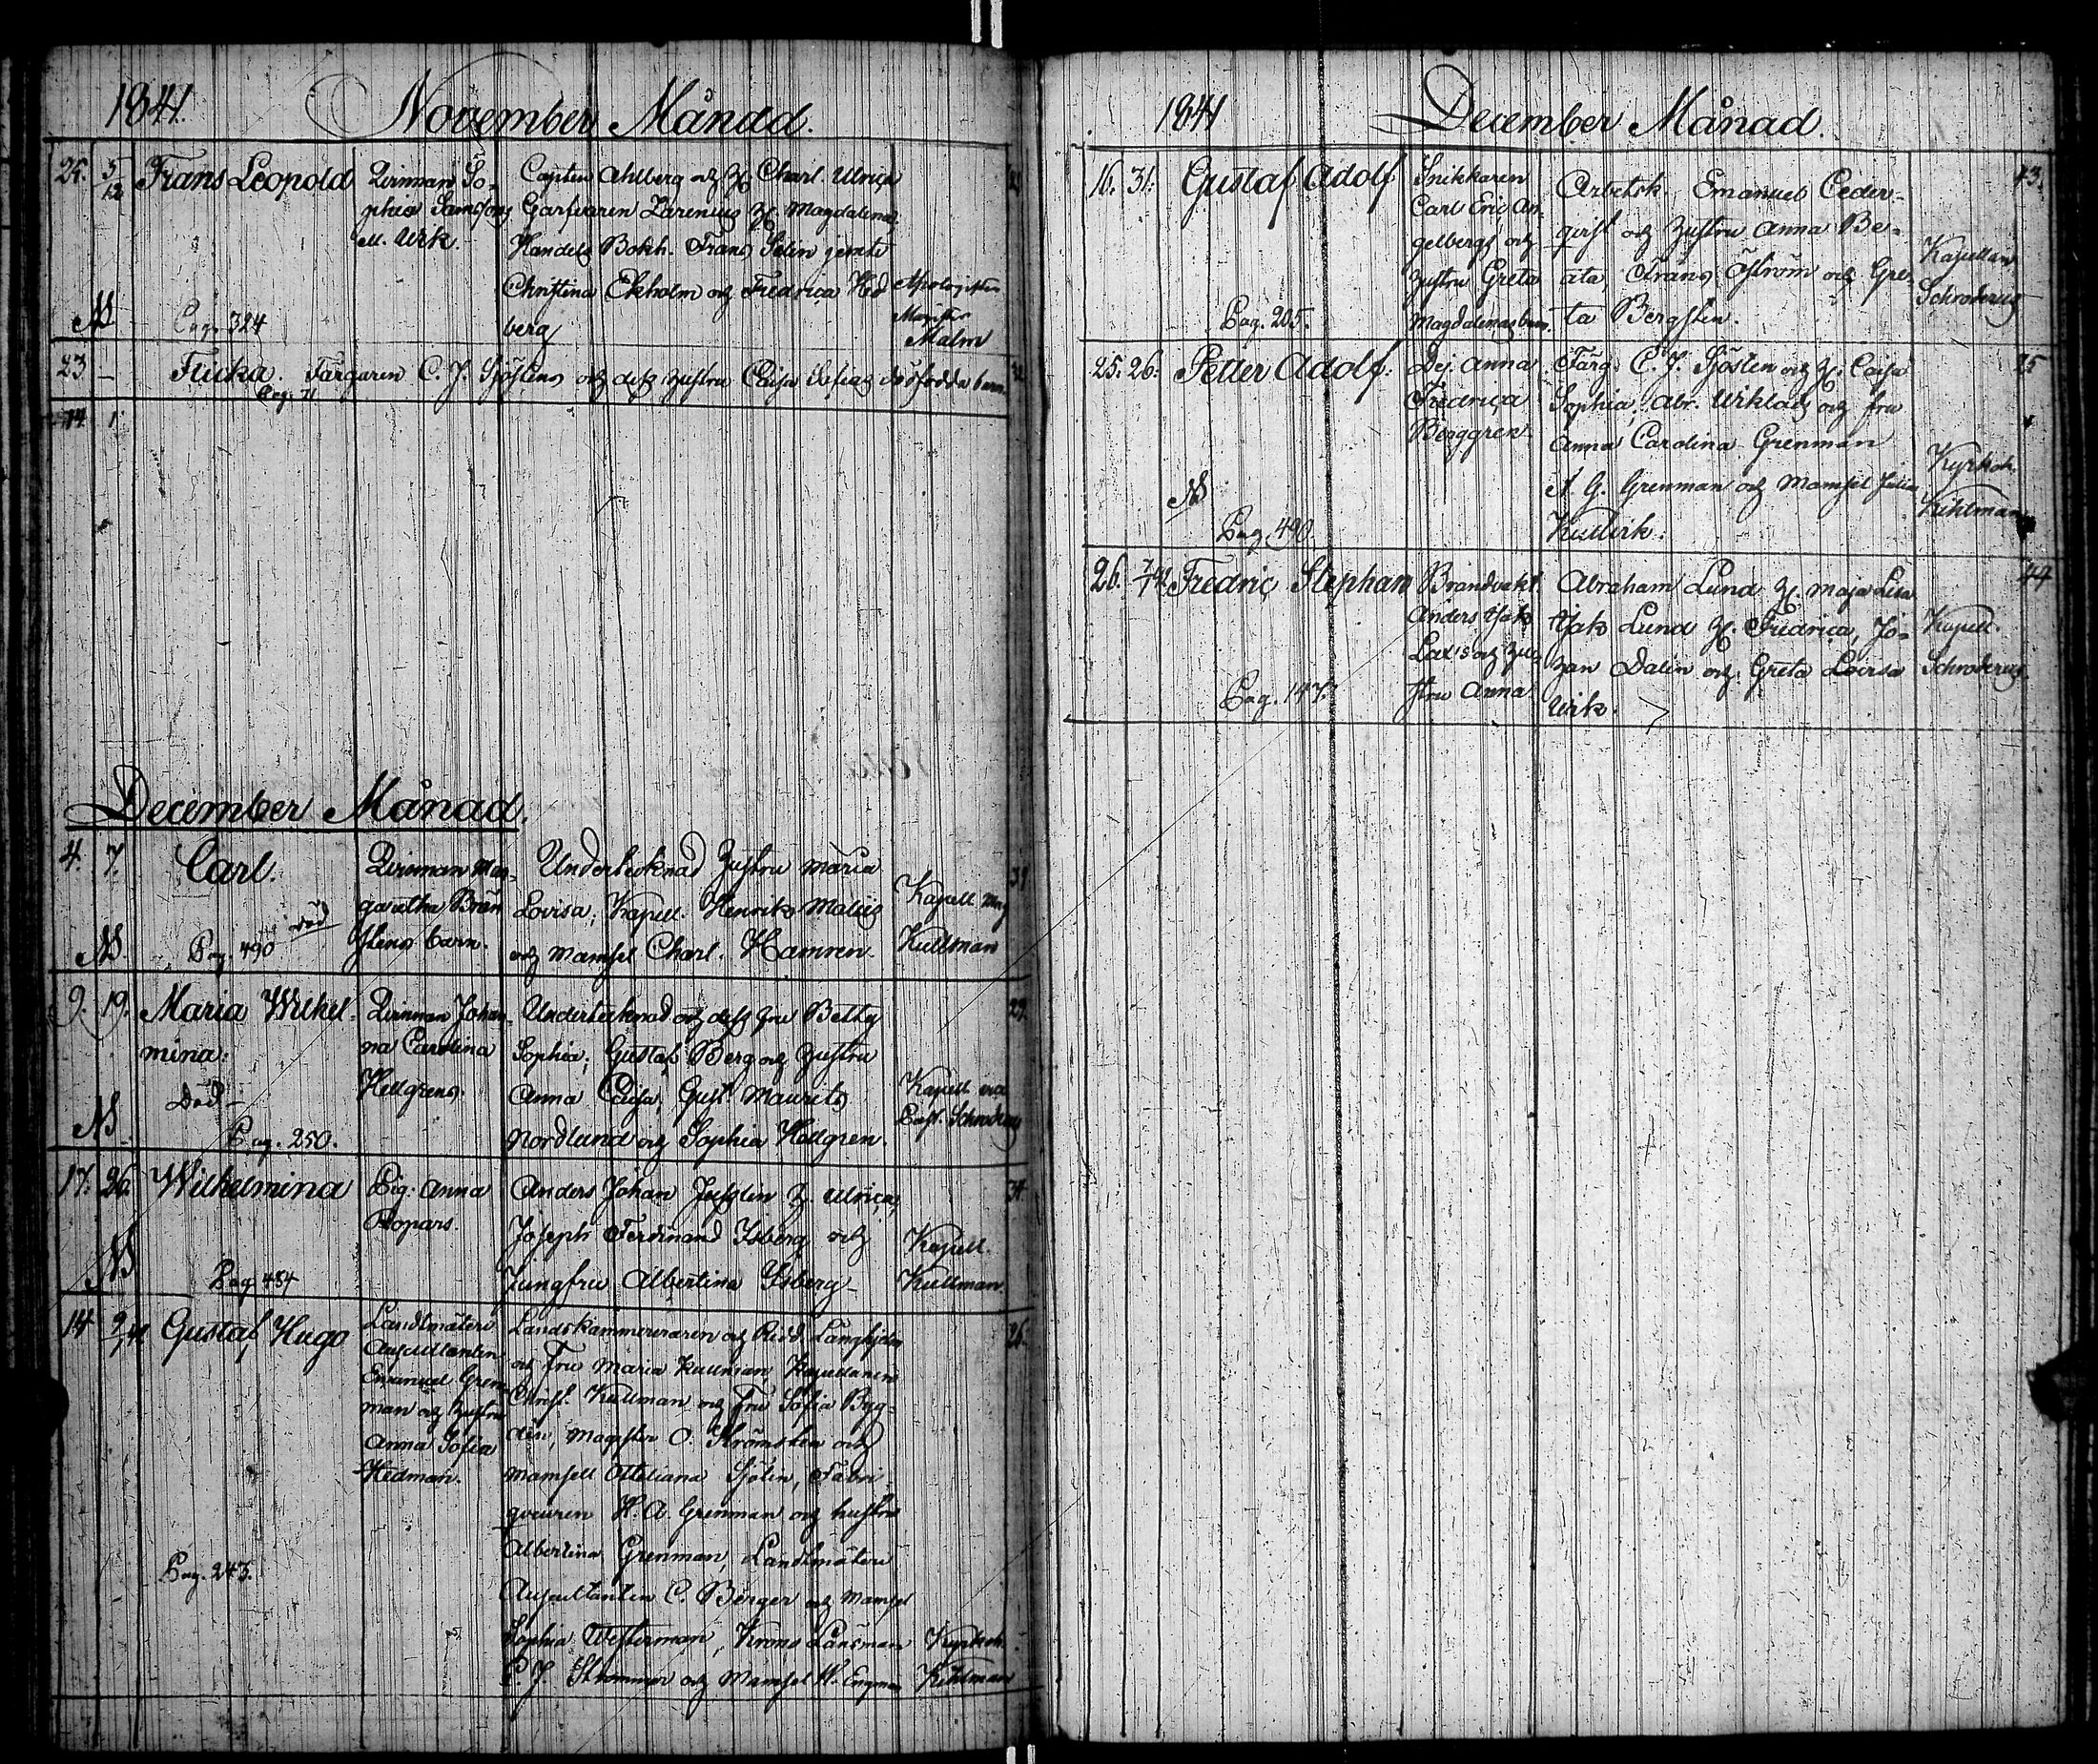 1841. November Månad.
25. 5/12 Frans Leopold Qvinnan So-
phia Samssons
oä. Wik.
Capiten Ahlberg och H. Charl. Ulrica
Garfvaren Zarenius H. Magdalena
Handels Bokh. Frans Selin jemte
Christina Ekholm och Fredrica Hed
berg
Apologisten
Magister
Malm
Pag. 324
23 — Flicka. Färgaren C. J. Sjöstens och dess hustru Caisa Sofias dödfödda barn.
Pag. 71
14 1
December Månad.
4. 7. Carl.
död
Pag. 490
Qvinnan Mar-
garetha Brän
stens barn.
Undertecknad hustru Maria
Lovisa, Kapell. Henrik Malius
och Mamsel Charl. Hamren.
Kapell.
Kullman
39
9. 19. Maria Wilhel-
mina.
Död —
Pag. 250.
Qvinnan Johan-
na Carolina
Hellgrens.
Undertecknad och dess fru Betty
Sophia, Gustaf Berg och hustru
Anna Caisa, Gust. Maurits
Nordlund och Sophia Hellgren.
Kapell.
Past. Schroderus
29.
17. 26. Wilhelmina
Pag. 484
Pig. Anna
Ropars.
Anders Johan Jusslin H. Ulrica,
Joseph Ferdinand Isberg och
Jungfru Albertina Isberg
Kapell.
Kullman.
34
14 9/1 42 Gustaf Hugo
Pag. 243.
Landtmäteri
Auscultanten
Emanuel Gren-
man och hustru
Anna Sofia
Hedman.
Landskammereraren och Ridd. Långhjelm
och Fru Maria Kullman Kapellanen
Christ. Kullman och Fru Sofia Byg-
den, Magister O. Strömsten och
Mamsell Ottiliana Sjölin, Fabri
queuren H. A. Grenman och hustru
Albertina Grenman, Landtmäteri
Auscultanten C. Berger och Mamsel
Sophia Westerman, Krono Länsman
C. J. Strömmer och Mamsel W. Engman
Kyrkoh.
Kihlman
26.
1841 December Månad.
16. 31. Gustaf Adolf
Pag. 205.
Snikkaren
Carl Eric An-
gelbergs och
hustru Greta
Magdalenas barn.
Arbetsk. Emanuel Ceder-
qvist och hustru Anna Be-
ata, Frans Öström och Gre-
ta Bergsten.
Kapellan
Schroderus
43.
25. 26. Petter Adolf.
Pag. 490.
Dej. Anna
Fredrica
Berggren.
Färg. C. J. Sjösten och H. Caisa
Sophia, Abr. Wiklas och fru
Anna Carolina Grenman
A. G. Grenman och Mamsel Julia
Kihlman
Kyrkoh.
25
26. 7/1 42 Fredric Stephan
Pag. 147.
Brandvakt.
Anders Isak
Laxs och hu-
stru Anna
Abraham Lund H. Maja Lisa
Isak Lund H. Fredrica, Jo-
han Dalin och Greta Lovisa
Wik.
Kapell.
Schroderus.
44